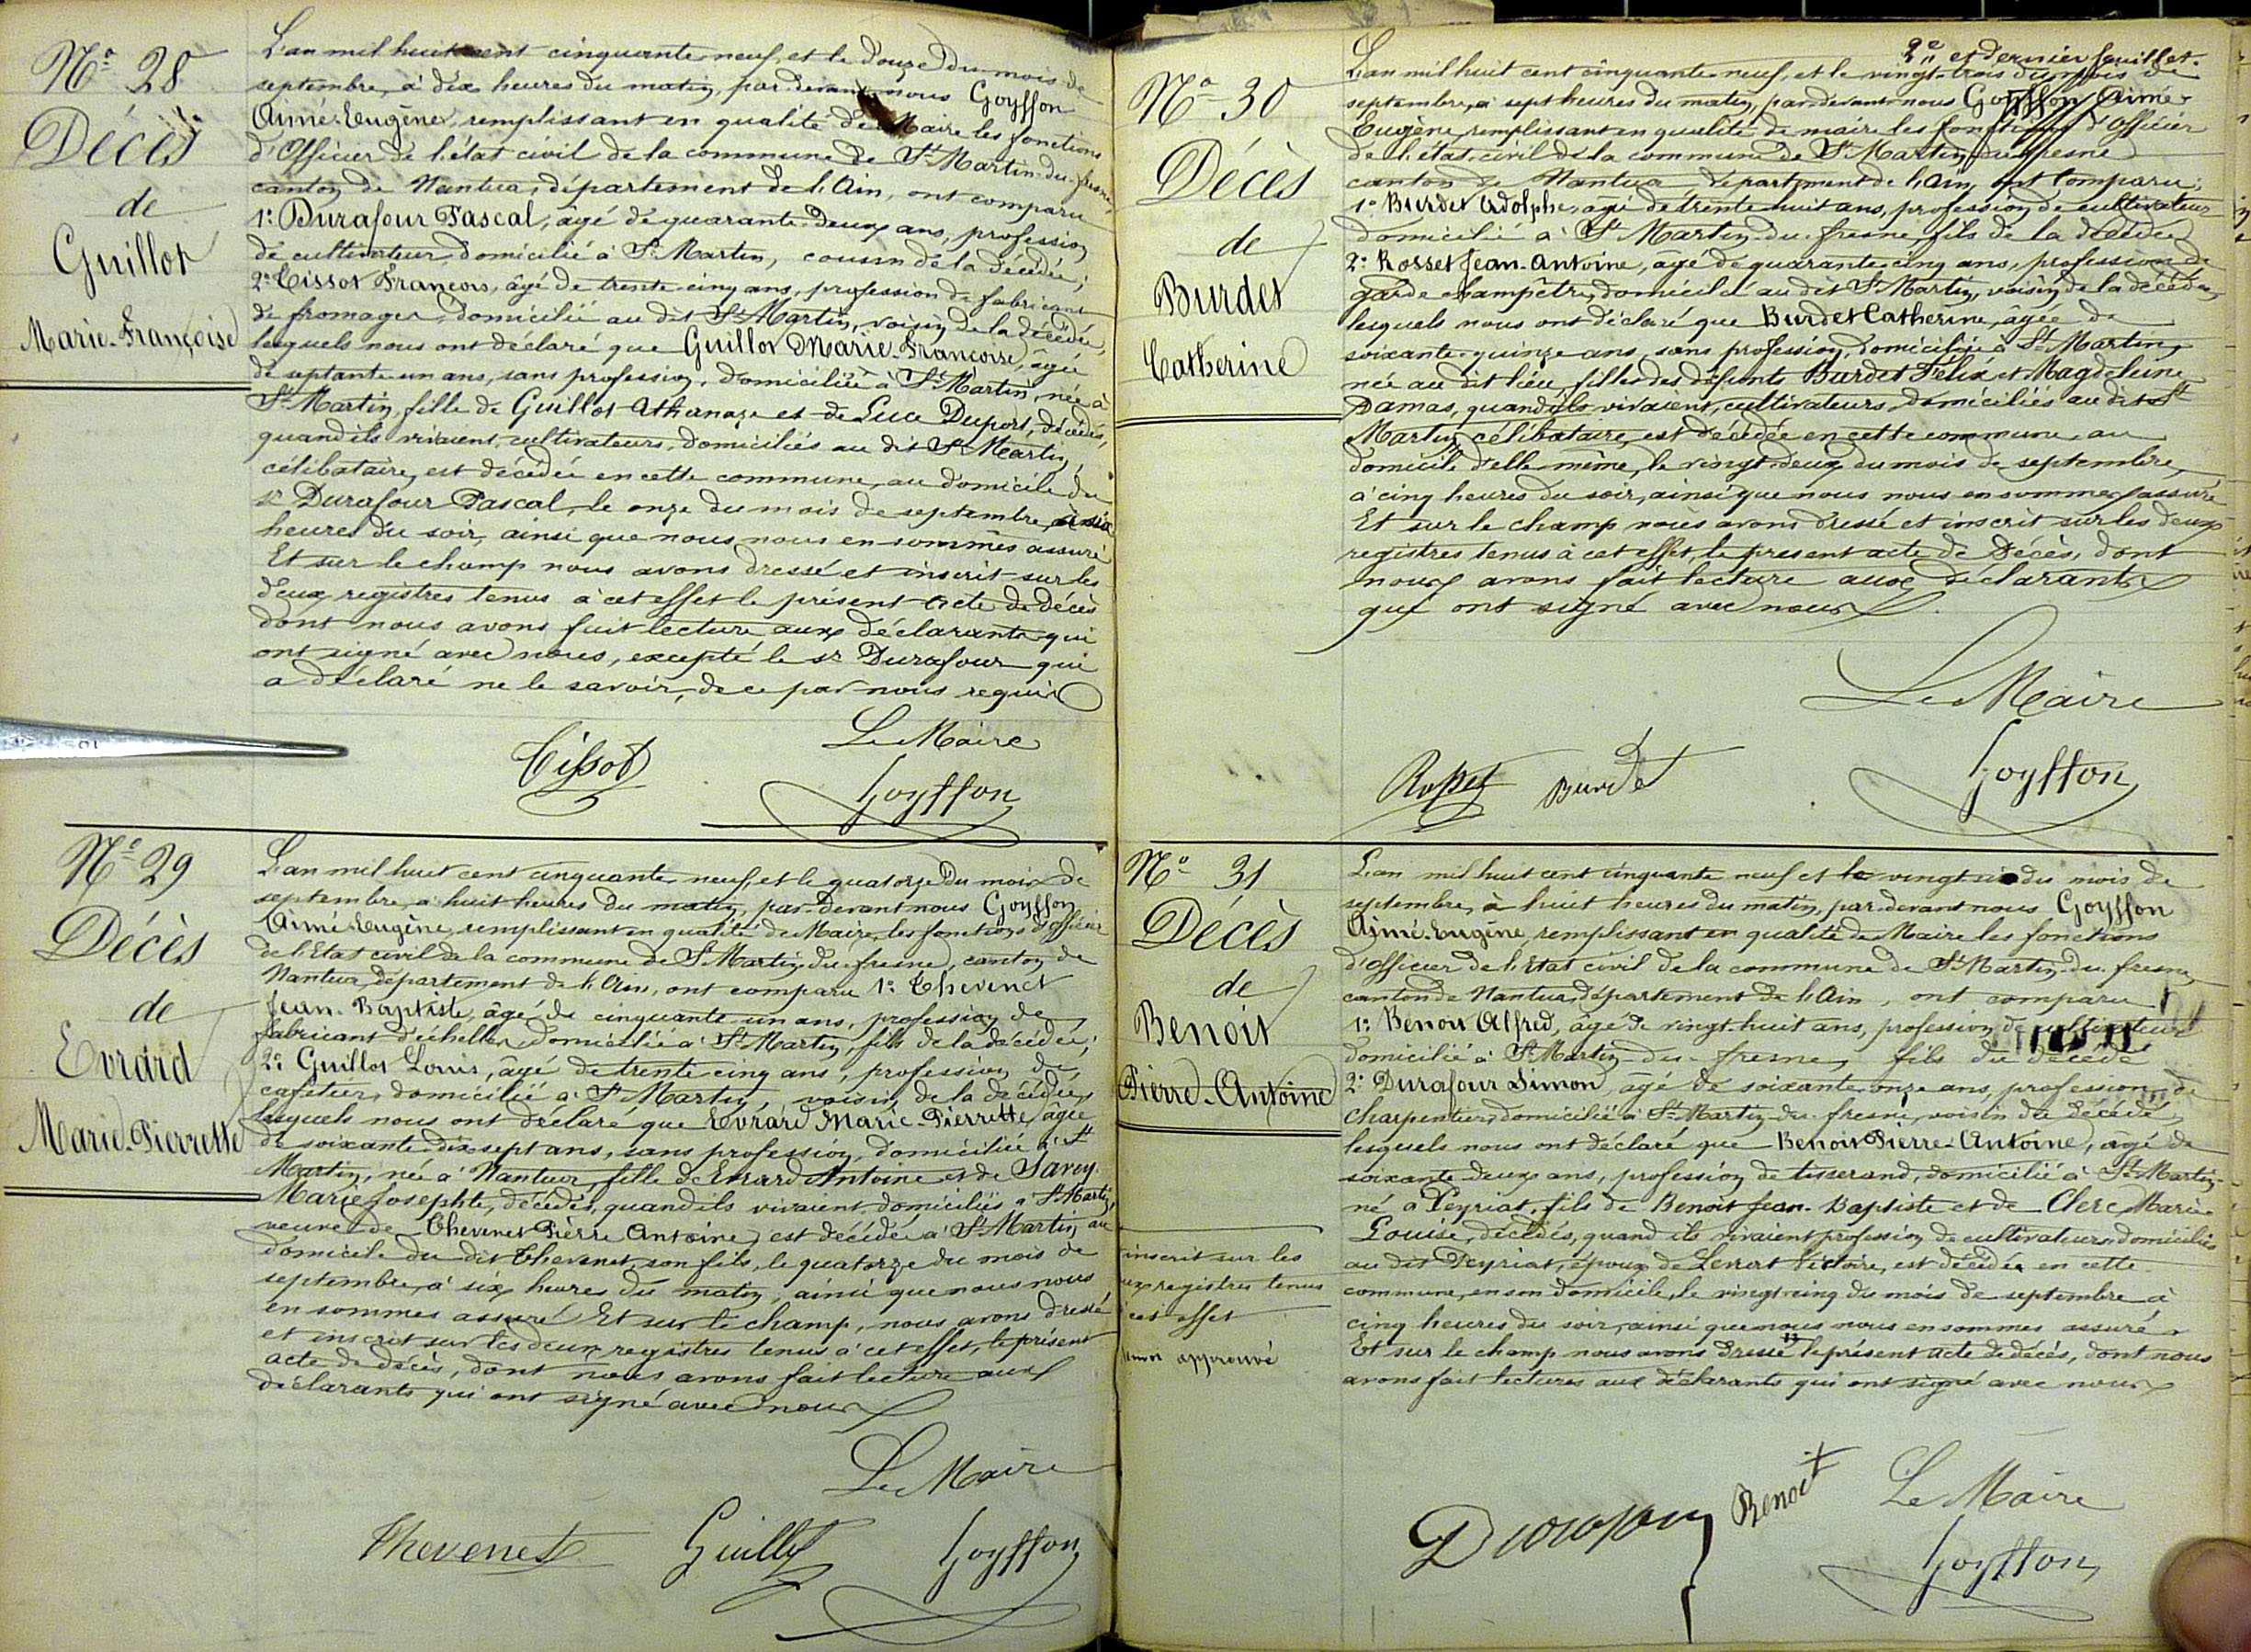 Nº 28
Décès
de
Guillot
Marie-Françoise
L'an mil huit cent cinquante neuf, et le douze du mois de
septembre, à dix heures du matin, par devant nous Goyffon
Aimé-Eugène, remplissant en qualité de Maire les fonctions
d'Officier de l'état civil de la commune de St Martin-du-fresne,
canton de Nantua, département de l'Ain, ont comparu
1º Durafour Pascal, âgé de quarante-deux ans, profession
de cultivateur, domicilié à St Martin, cousin de la décédée;
2º Tissot François, âgé de trente-cinq ans, profession de fabricant
de fromages, domicilié au dit St Martin, voisin de la décédée,
lesquels nous ont déclaré que Guillot Marie-Françoise, âgée
de septante un ans, sans profession, domiciliée à St Martin, née à
St Martin, fille de Guillot Athanaze et de Luce Duport, décédés,
quand ils vivaient cultivateurs, domiciliés au dit St Martin,
célibataire, est décédée en cette commune, au domicile du
sr Durafour Pascal, le onze du mois de septembre, à six
heures du soir, ainsi que nous nous en sommes assuré
Et sur le champ nous avons dressé et inscrit sur les
deux registres tenus à cet effet le présent acte de décès
dont nous avons fait lecture aux déclarants qui
ont signé avec nous, excepté le sr Durafour qui
a déclaré ne le savoir, de ce par nous requis
Le Maire
Tissot
Goyffon
Nº 29
Décès
de
Evrard
Marie-Pierrette
L'an mil huit cent cinquante neuf, et le quatorze du mois de
septembre, à huit heures du matin, par-devant nous Goyffon
Aimé Eugène, remplissant en qualité de Maire, les fonctions d'officier
de l'Etat civil de la commune de St Martin-du-fresne, canton de
Nantua, département de l'Ain, ont comparu 1º Thevenet
Jean-Baptiste, âgé de cinquante un ans, profession de
fabricant d'échelles, domicilié à St Martin, fils de la décédée;
2º Guillot Louis, âgé de trente cinq ans, profession de
cafetier, domicilié à St Martin, voisin de la décédée,
lesquels nous ont déclaré que Evrard Marie-Pierrette, âgée
de soixante-dix-sept ans, sans profession, domiciliée à St
Martin, née à Nantua, fille de Evrard Antoine et de Savey
Marie Josephte, décédés, quand ils vivaient domiciliés à St Martin,
veuve de Thevenet Pierre Antoine, est décédée à St Martin au
domicile du dit Thevenet, son fils, le quatorze du mois de
septembre, à six heures du matin, ainsi que nous nous
en sommes assuré Et sur le champ, nous avons dressé
et inscrit sur les deux registres tenus à cet effet, le présent
acte de décès, dont nous avons fait lecture aux
déclarants qui ont signé avec nous
Le Maire
Thevenet Guillot Goyffon
2e et dernier feuillet.
Nº 30
Décès
de
Burdet
Catherine
L'an mil huit cent cinquante neuf, et le vingt-trois du mois de
septembre, à sept heures du matin, par-devant nous Goyffon Aimé
Eugène, remplissant en qualité de maire les fonctions d'Officier
de l'état civil de la commune de St Martin-du-fresne
canton de Nantua département de l'Ain, ont comparu,
1º Burdet Adolphe, âgé de trente-huit ans, profession de cultivateur
domicilié à St Martin-du-fresne, fils de la décédée
2º Rosset Jean-Antoine, âgé de quarante cinq ans, profession de
garde champêtre, domicilié au dit St Martin, voisin de la décédée,
lesquels nous ont déclaré que Burdet Catherine, âgée de
soixante-quinze ans, sans profession, domiciliée à St Martin,
née au dit lieu, fille des défunts Burdet Félix et Magdeleine
Damas, quand ils vivaient, cultivateurs, domiciliés au dit St
Martin, célibataire, est décédée en cette commune, au
domicile d'elle même, le vingt-deux du mois de septembre,
à cinq heures du soir, ainsi que nous nous en sommes assuré
Et sur le champ nous avons dressé et inscrit sur les deux
registres tenus à cet effet, le présent acte de Décès, dont
nous avons fait lecture aux déclarants
qui ont signé avec nous.
Le Maire
Rosset Burdet Goyffon
Nº 31
Décès
de
Benoit
Pierre-Antoine
L'an mil huit cent cinquante neuf et le vingt six du mois de
septembre, à huit heures du matin, par-devant nous Goyffon
Aimé-Eugène, remplissant en qualité de Maire les fonctions
d'officier de l'Etat civil de la commune de St Martin-du-fresne,
canton de Nantua, département de l'Ain, ont comparu
1º Benoit Alfred, âgé de vingt-huit ans, profession de cultivateur
domicilié à St Martin-du-fresne, fils du décédé
2º Durafour Simon, âgé de soixante onze ans, profession de
charpentier, domicilié à St Martin-du-fresne, voisin du décédé,
lesquels nous ont déclaré que Benoit Pierre-Antoine, âgé de
soixante deux ans, profession de tisserand, domicilié à St Martin-
né à Peyriat, fils de Benoit Jean-Baptiste et de Clerc Marie-
Louise, décédés, quand ils vivaient profession de cultivateurs domiciliés
au dit Peyriat, époux de Victoire, est décédée en cette
commune, en son domicile, le vingt-cinq du mois de septembre à
cinq heures du soir, ainsi que nous nous en sommes assuré
Et sur le champ nous avons dressé le présent acte de décès, dont nous
avons fait lecture aux déclarants qui ont signé avec nous
inscrit sur les
registres tenus
cet effet
approuvé
Durafour Benoit Le Maire
Goyffon